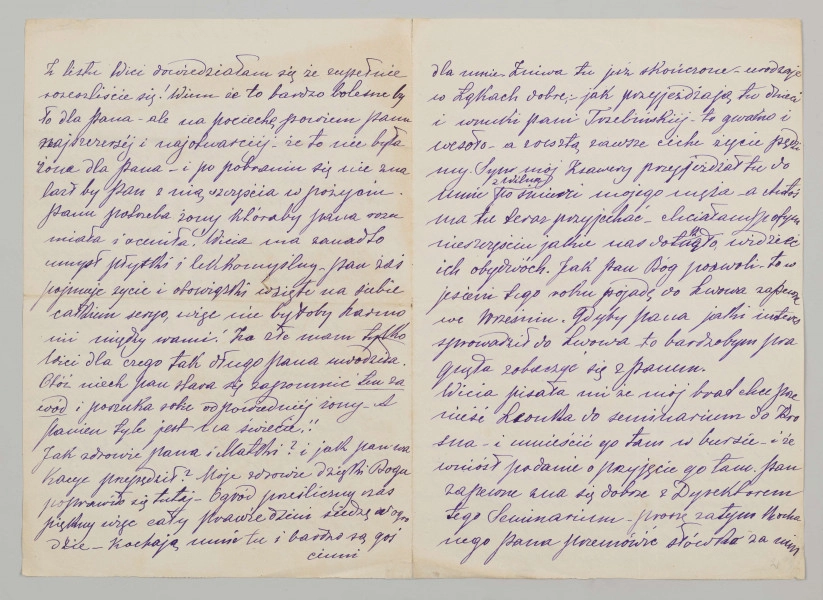 Z listu Wici dowiedziałam się że zupełnie
rozeszliście się! Wiem że to bardzo bolesne by
ło dla Pana - ale na pociechę powiem Panu
najszczerzej i najotwarciej - że to nie była
żona dla Pana - i po pobraniu się nie zna
lazł by Pan z nią szczęścia w pożyciu.
Panu potrzeba żony któraby Pana rozu
miała i oceniła! Wicia ma zanadto
umysł płytki i lekkomyślny - Pan zaś
pojmuje życie i obowiązki wzięte na siebie
całkiem seryo, więc nie byłoby harmo
nii między wami! Za złe mam tylko
Wici dla czego tak długo Pana uwodziła.
Otóż niech Pan stara się zapomnieć ten za
wód i poszuka sobie odpowiedniej żony - A
panien tyle jest na świecie!!
Jak zdrowie Pana i Matki? i jak Pan wa
kacye przepędził? Moje zdrowie dzięki Bogu
poprawiło się tutaj - Ogród prześliczny czas
piękny więc cały prawie dzień siedzę w ogro
dzie - Kochają mnie tu i bardzo są goś
cinni
dla mnie. Żniwa tu już skończone - urodzaje
w Łąkach dobre; - jak przyjeżdżają tu dzieci
i wnuki pani Trzebińskiej - to gwarno i
wesoło - a zresztą zawsze ciche życie pędzi
my. Syn mój Ksawery przyjeżdżał tu do
z Wilna
mnie po śmierci mojego męża - a
ma tu teraz przyjechać - chciałam po tym
nieszczęściu jakie nas dotknęło widzieć
ich obydwóch. Jak Pan Bóg pozwoli - to w
jesieni tego roku pojadę do Lwowa zapew
ne we Wrześniu. Gdyby Pana jakiś interes
sprowadził do Lwowa to bardzobym pra
gnęła zobaczyć się z Panem.
Wicia pisała mi że mój brat chce prze
nieść Leonka do seminarium do Kro
sna - i umieścić go tam w bursie - i że
wniósł podanie o przyjęcie go tam. Pan
zapewne zna się dobrze z Dyrektorem
tego Seminarium - proszę zatym Kocha
nego Pana przemówić słówko za nim